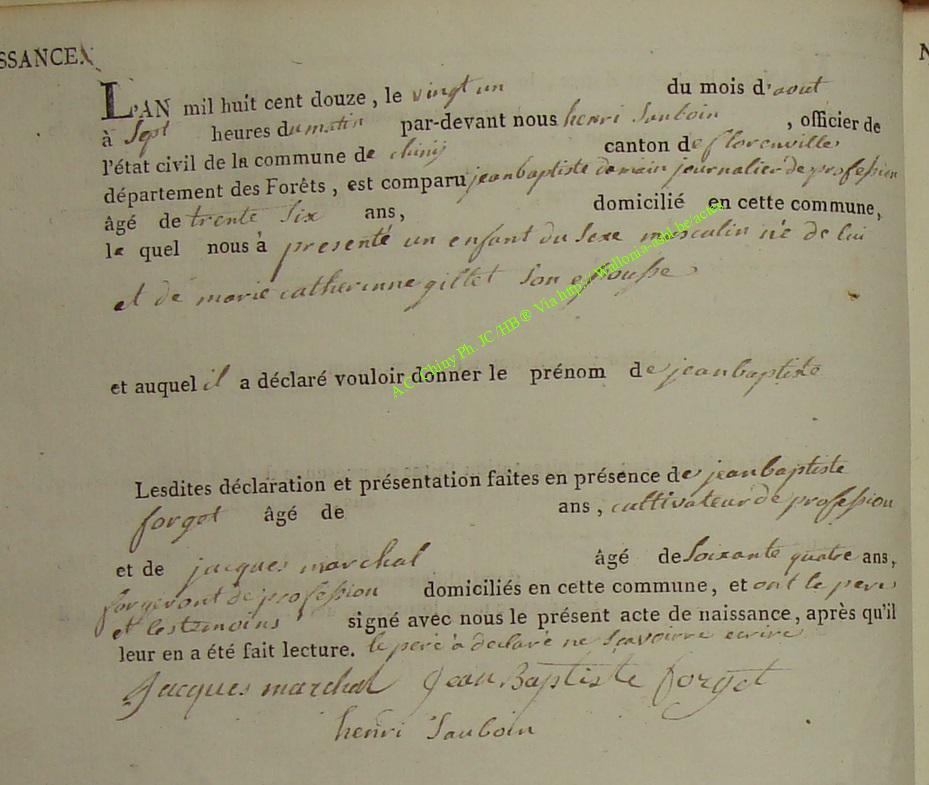 SSANCE
N
L'AN mil huit cent douze, le vingt un du mois d'aout
à Sept heures du matin par-devant nous henri Sauboin, officier de
l'état civil de la commune de chinij canton de florenville
département des Forêts, est comparu jean baptiste domain journalier de profession
âgé de trente Six ans, domicilié en cette commune,
le quel nous à presenté un enfant du Sexe masculin né de lui
et de marie catherinne gillet Son epousse
et auquel il a déclaré vouloir donner le prénom de jean baptiste
Lesdites déclaration et présentation faites en présence de jean baptiste
forget âgé de ans, cultivateur de profession
et de jacques marchal âgé de Soixante quatre ans,
forgeront de profession domiciliés en cette commune, et ont le pere
et les temoins signé avec nous le présent acte de naissance, après qu'il
leur en a été fait lecture. le peré à declaré ne sçavoirre ecrire
Jacques marchal Jean Baptiste forget
henri Sauboin
A.C. Chiny Ph. JC-HB® Via http://wallonia-asbl.be/actes/